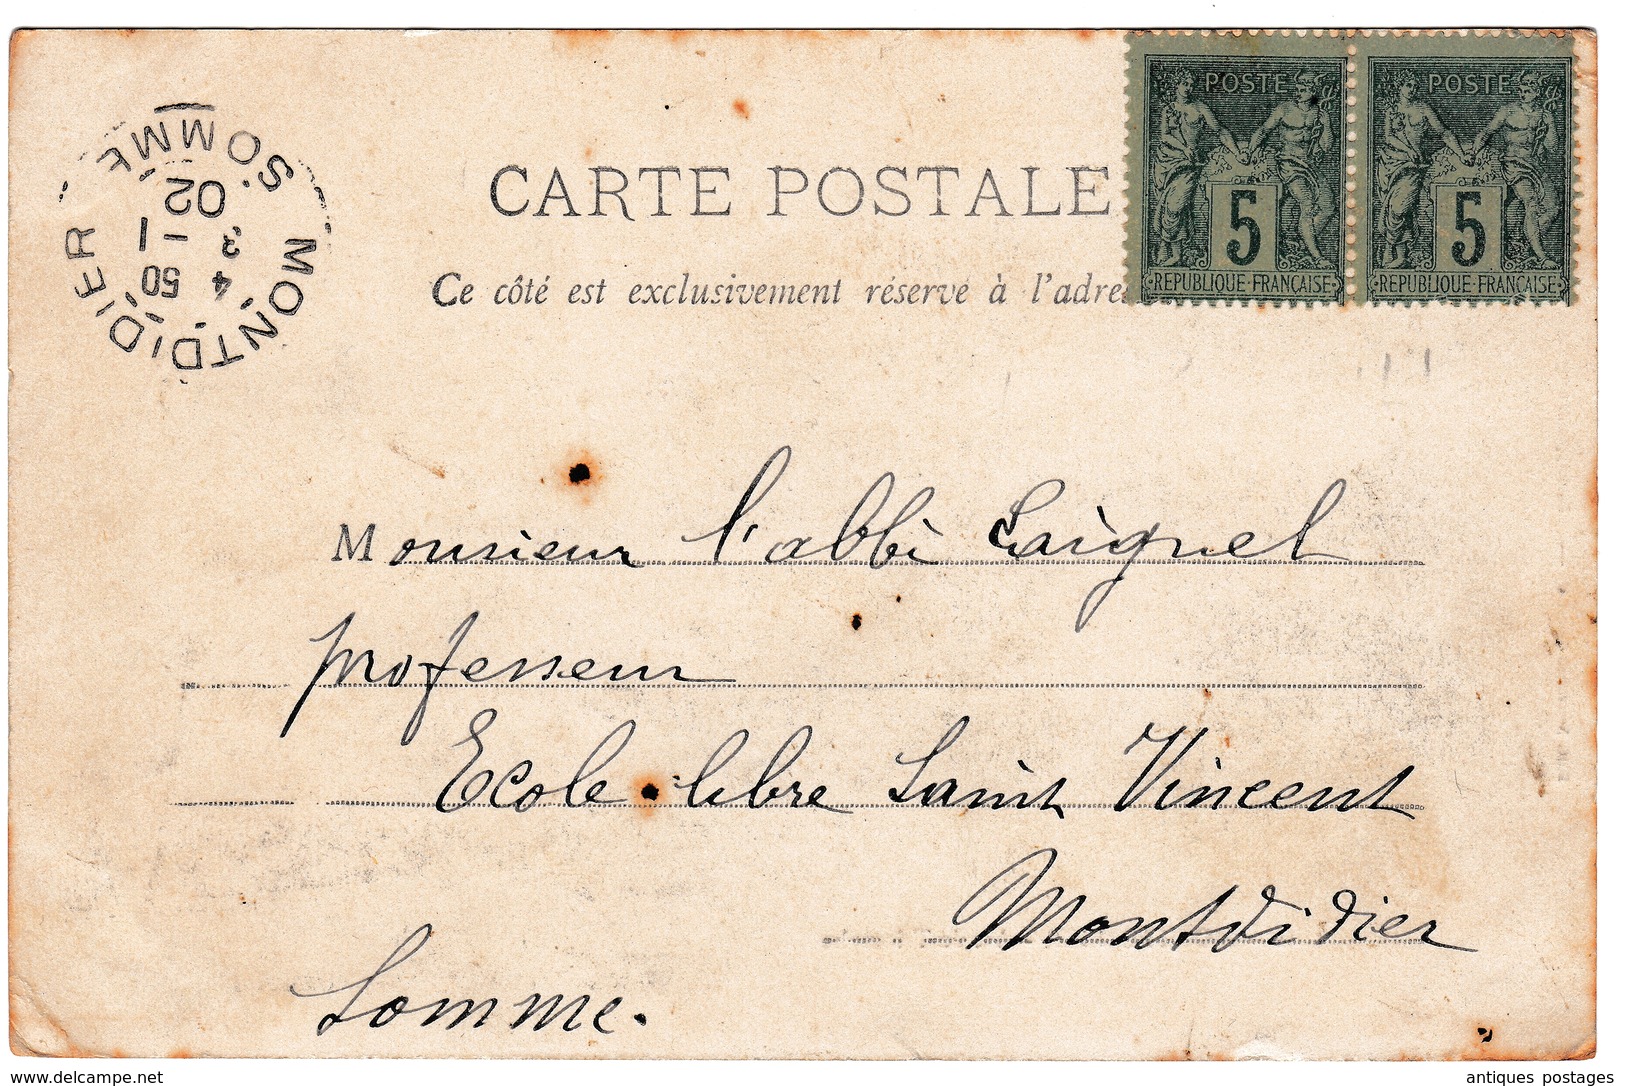 POSTE POSTE
5 5
REPUBLIQUE FRANÇAISE REPUBLIQUE FRANÇAISE
MONTDIDIER
SOMME
4 50
3 - 1
02
CARTE POSTALE
Ce côté est exclusivement réservé à l'adre
Monsieur l'abbé Laignel
professeur
Ecole libre Saint Vincent
Montdidier
Somme.
www.delcampe.net
antiques postages